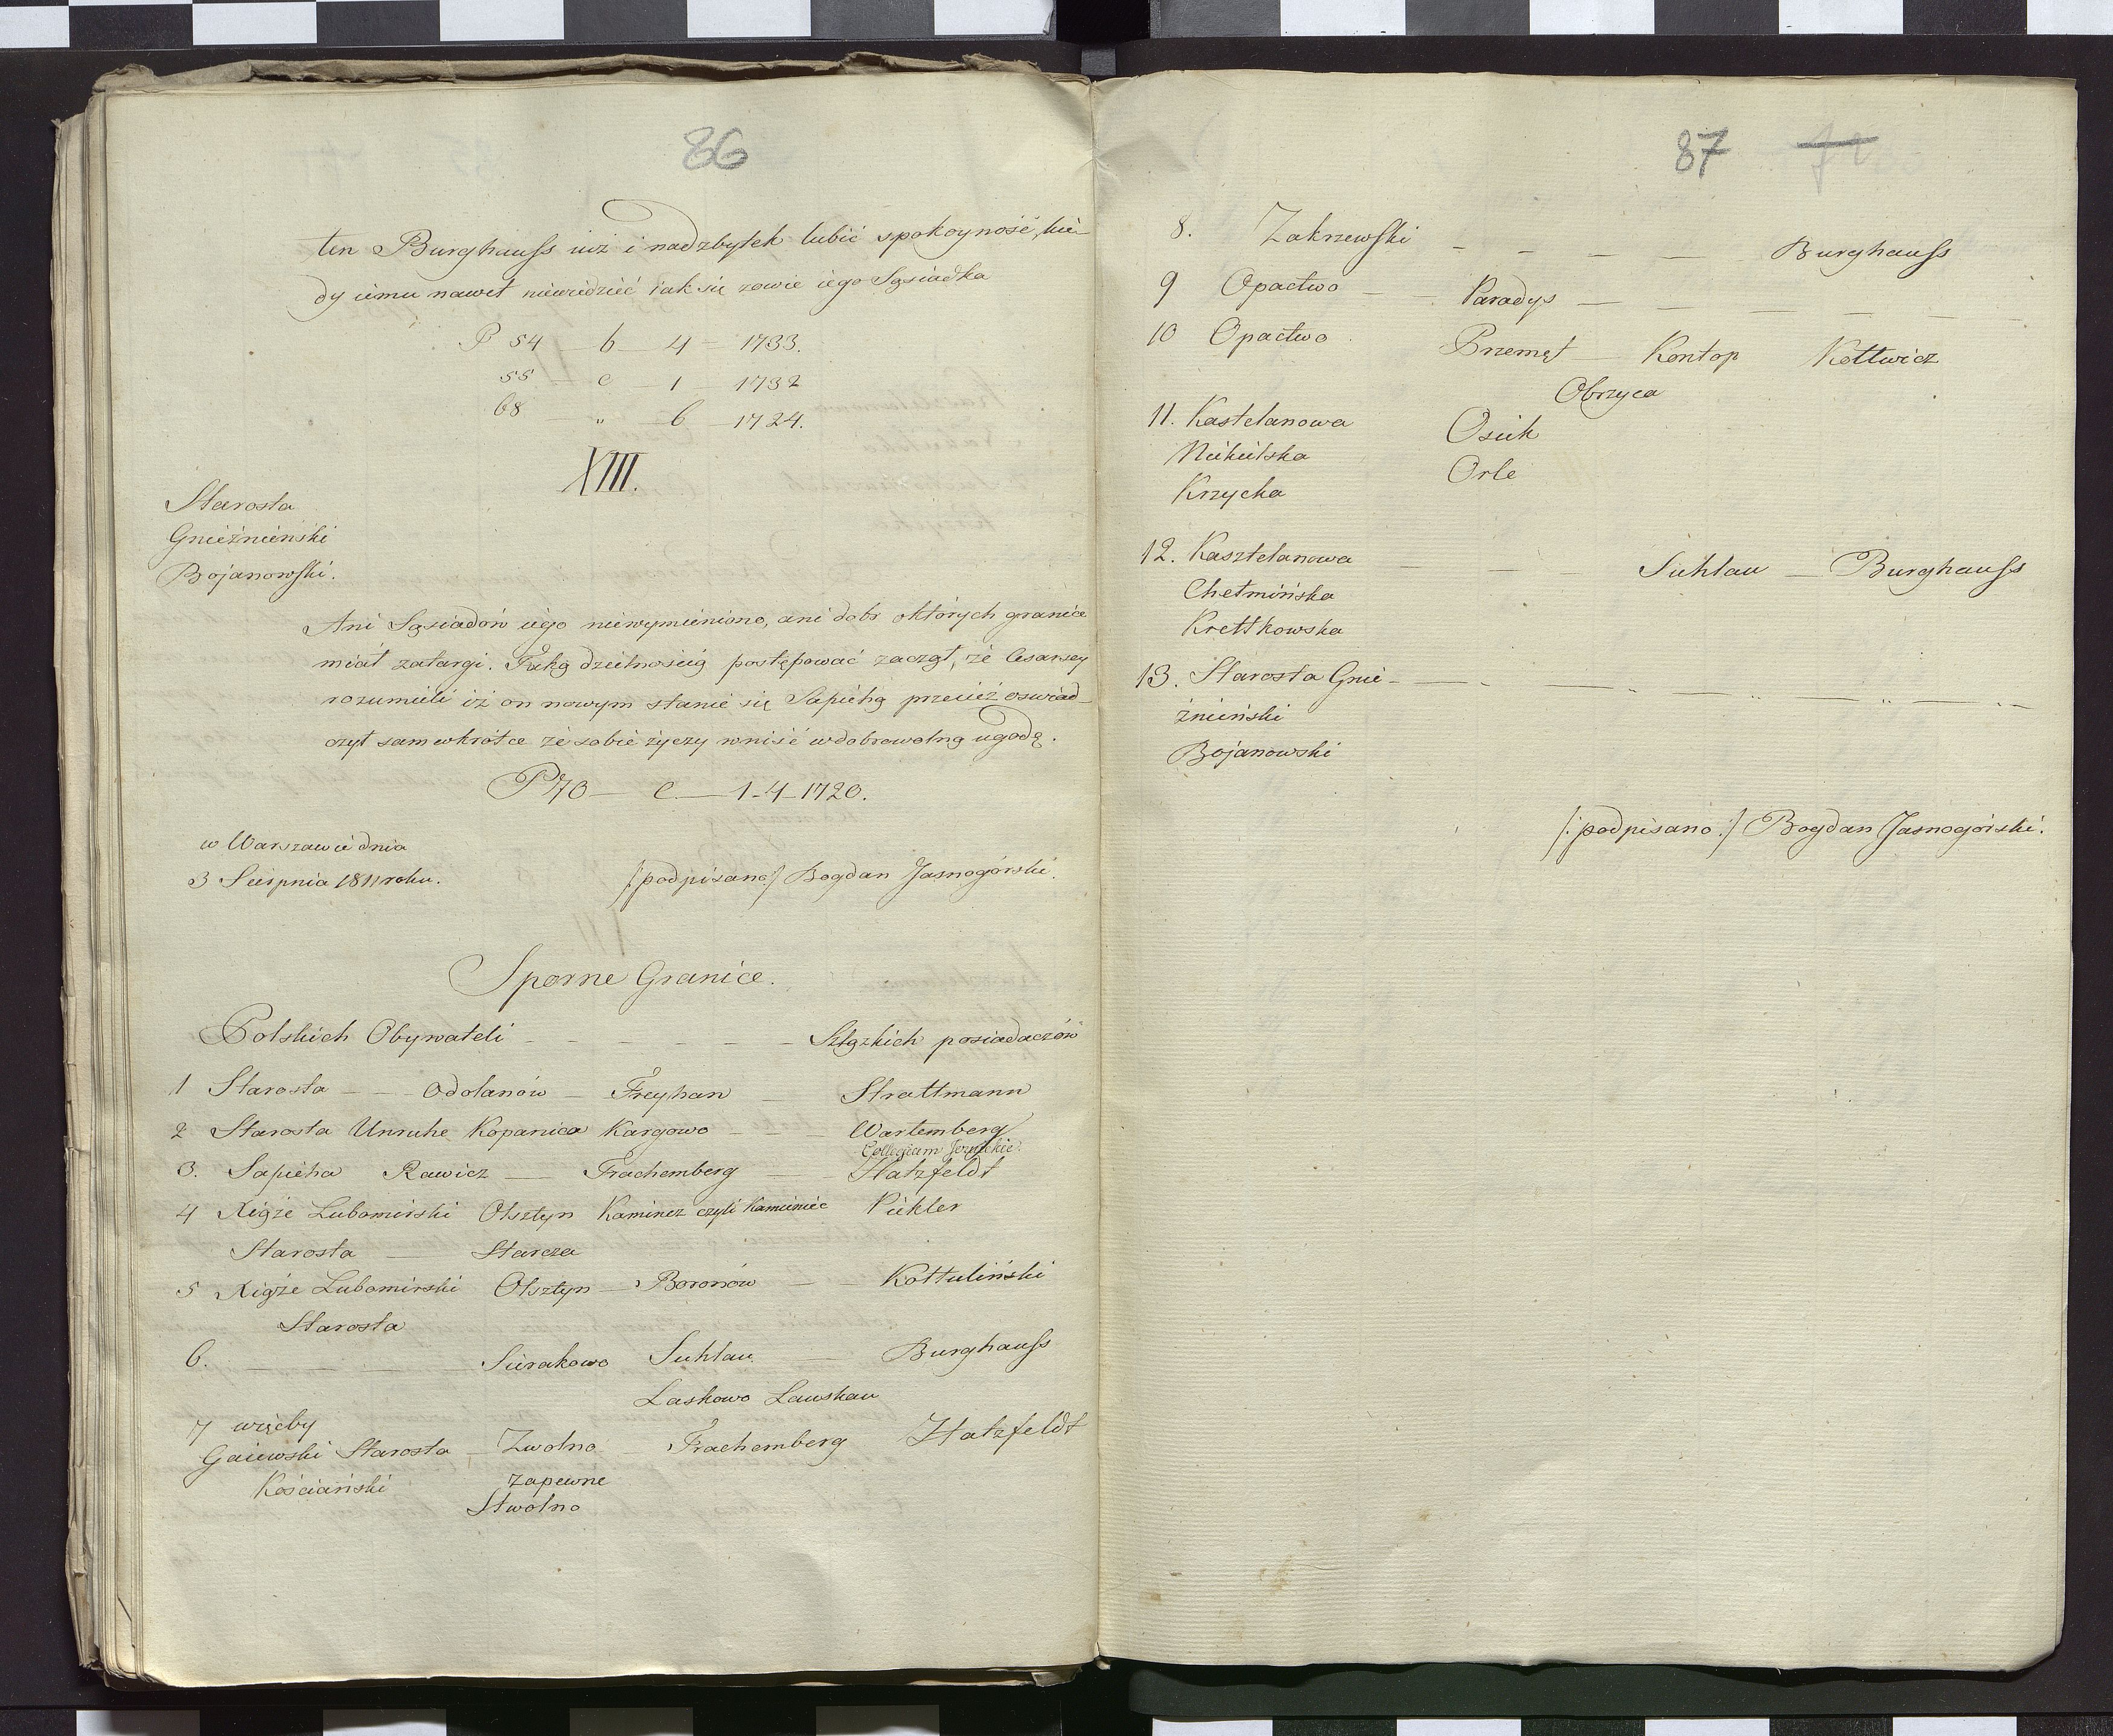 86
ten Burghauss iuż i nadzbytek lubić spokoyność, kie-
dy iemu nawet niewiedzieć iak się zowie iego Sąsiadka
P 54 — b — 4 — 1733.
55 — c — 1 — 1732
68 — „ — 6 — 1724.
XIII.
Starosta
Gnieźnieński
Bojanowski.
Ani Sąsiadów iego niewymieniono, ani dobr októrych granice
miał zatargi. Taką dzielnością postępować zaczął, że Cesarscy
rozumieli iż on nowym stanie się Sapiehą przecież oswiad-
czył sam wkrótce że sobie życzy wniść wdobrowolną ugodę.
P 70 — c — 1-4-1720.
w Warszawie dnia
3 Sierpnia 1811 roku.
/:podpisano:/ Bogdan Jasnogórski.
Sporne Granice.
Polskich Obywateli — — — — — — Szląskich posiadaczów
1 Starosta — — Odolanów — Freyhan — Strattmann
2 Starosta Unruhe Kopanica Kargowo — — — Wartemberg
Collegium Jezuickie.
3. Sapieha Rawicz — Trachemberg — — Hatzfeldt
4 Xiąże Lubomirski Olsztyn Kaminez czyli Kamieniec Pükler
Starosta — Starcza
5 Xiąże Lubomirski Olsztyn — Boronów — — Kottuliński
Starosta
6. — — — — Sierakowo Suhlau — Burghauss
Laskowo Lauskau
7 więcby
Gaiewski Starosta — Zwolno — Trachemberg Hatzfeldt
Kościański zapewne
Stwolno
87
8. Zakrzewski — — — — — Burghauss
9 Opactwo — — Paradys — — — — — —
10 Opactwo Przemęt — Kontop Kottwicz
Obrzyca
11. Kastelanowa Osiek
Nieki­elska Orle
Krzycka
12. Kasztelanowa — — — Suhlau — Burghauss
Chełmińska
Krettkowska
13. Starosta Gnie- — — — „ — „ — „ —
źnieński
Bojanowski
/:podpisano:/ Bogdan Jasnogórski.